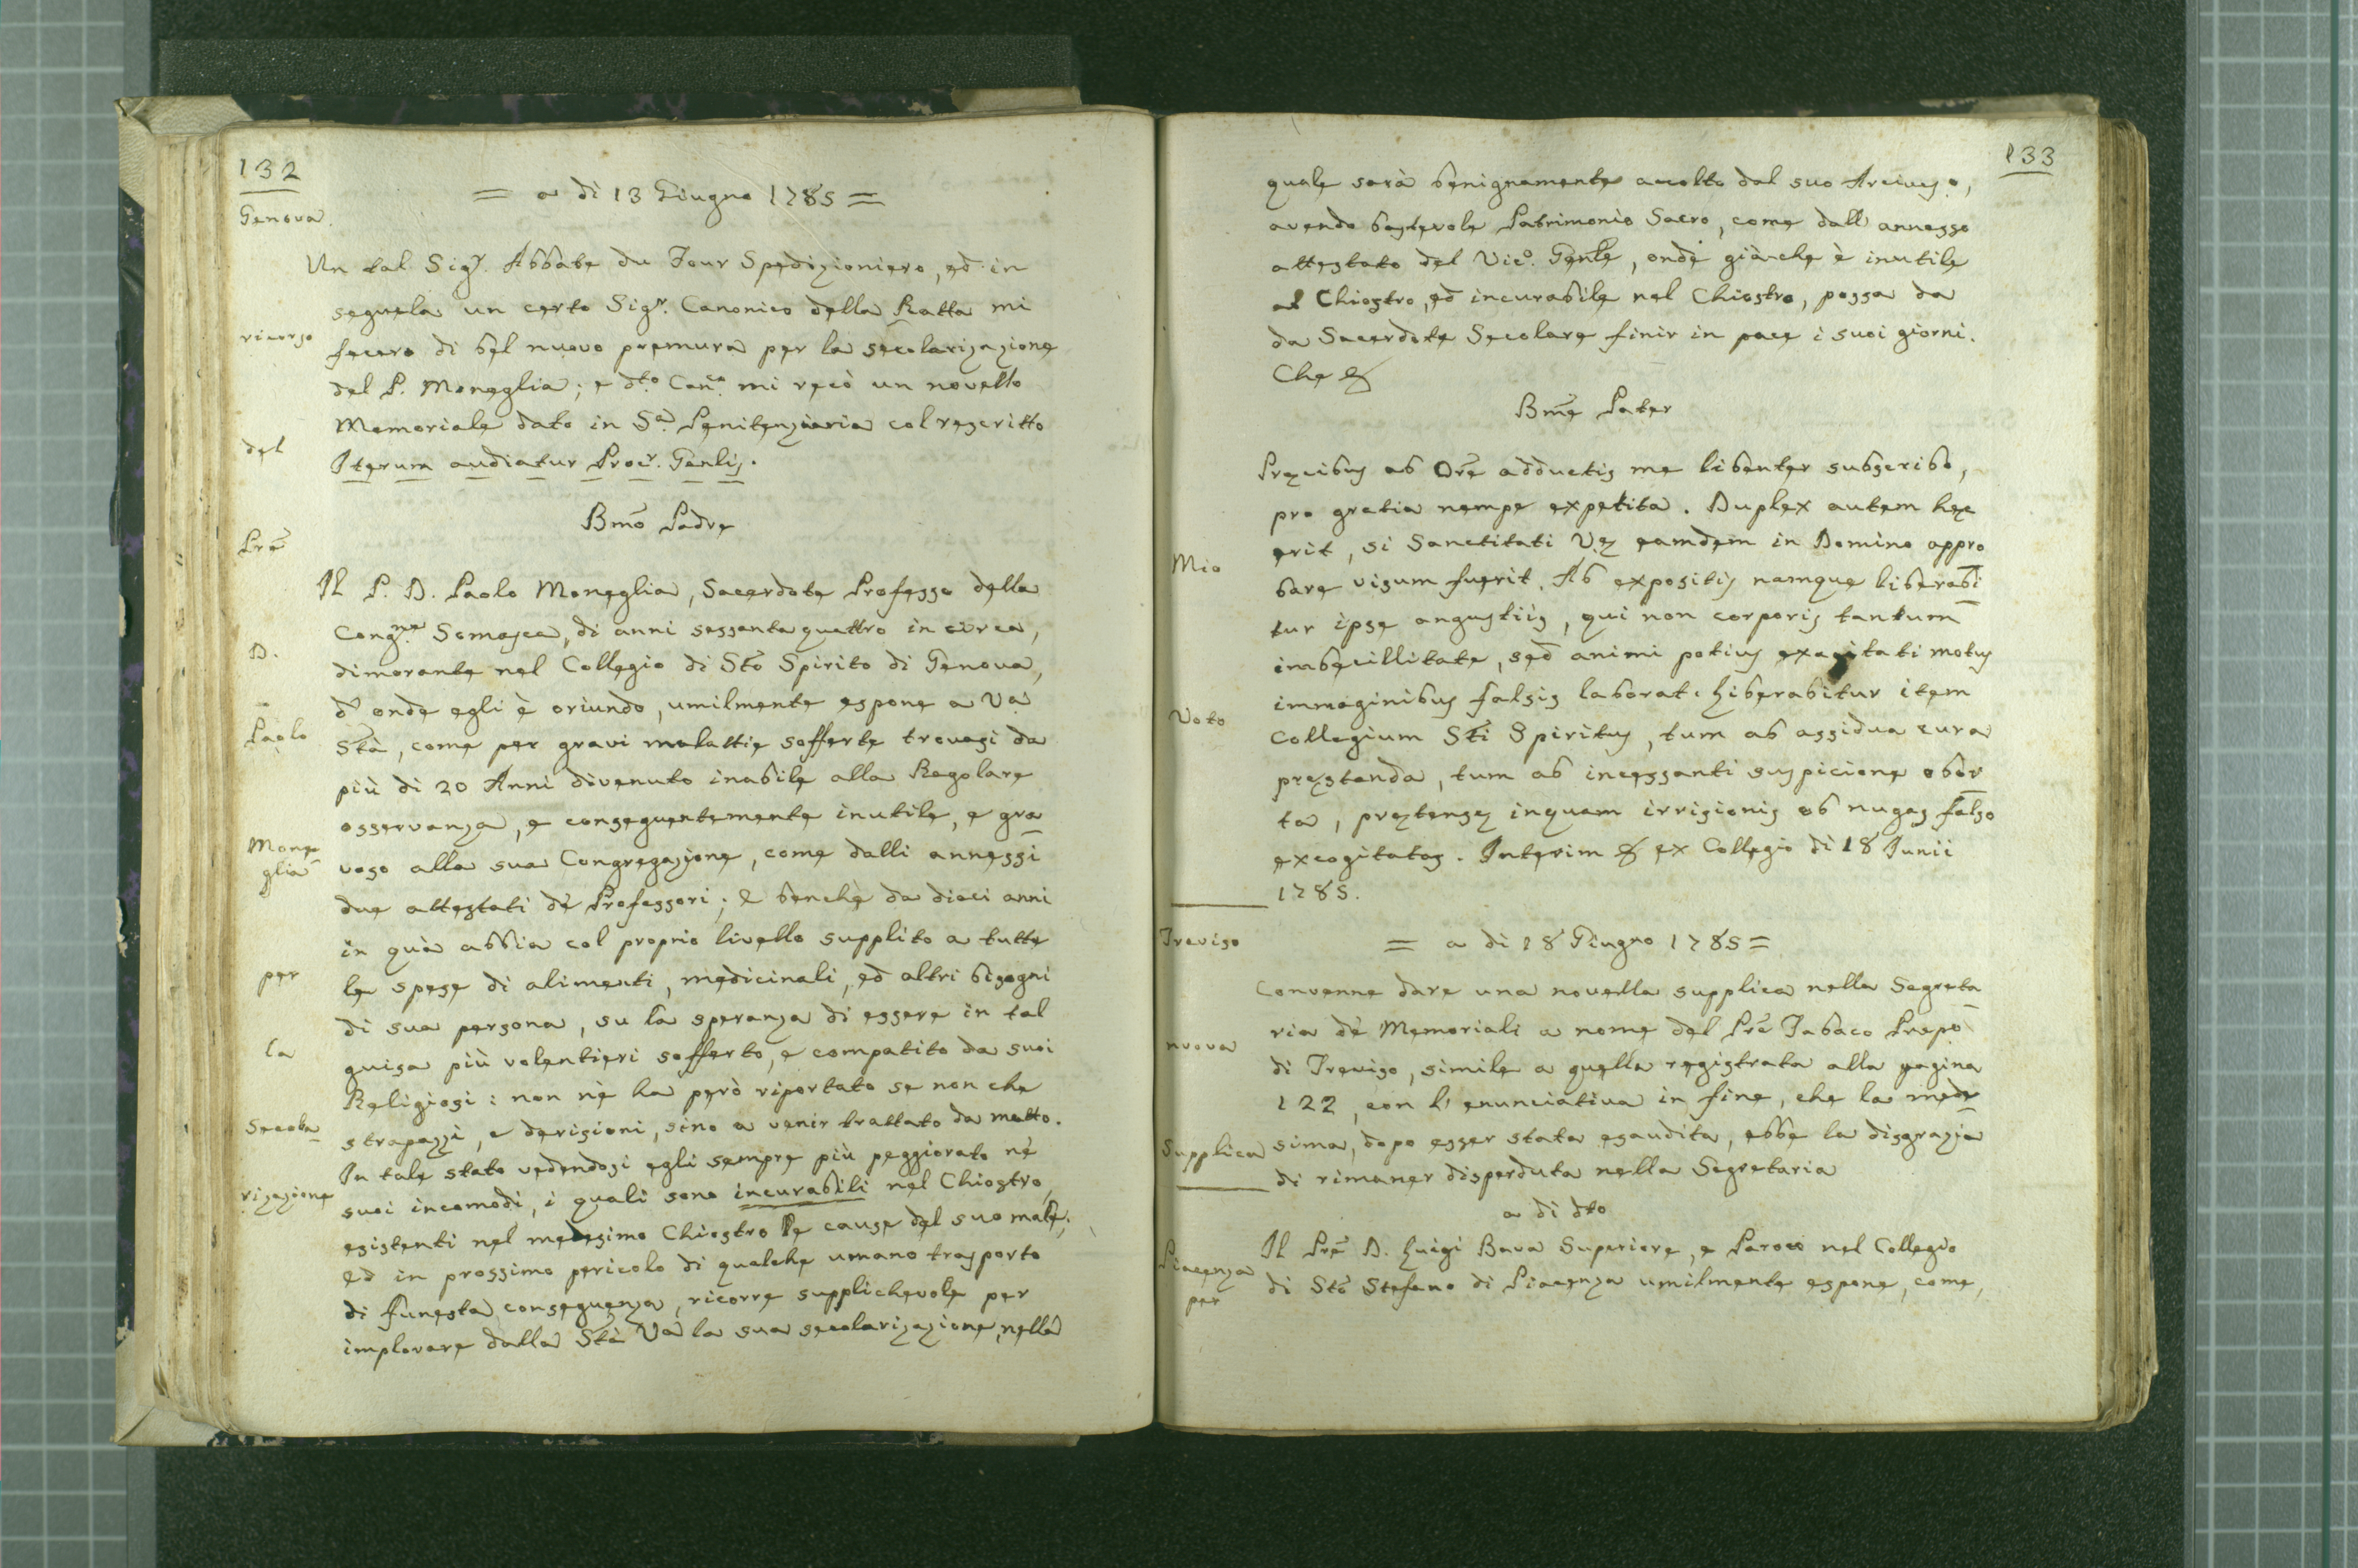 132
Genova.
= a dì 13 Giugno 1785 =
Un tal Sigr. Abbate du Four Spedizioniero, ed in
seguela un certo Sigr. Canonico della Ratta mi
ricorso
fecero di bel nuovo premura per la secolarizazione
del P. Moneglia; e dto. Canco. mi recò un novello
Memoriale dato in Sa. Penitenziaria col rescritto
del
Iterum audiatur Procr. Genlis.
Bmo Padre
Prē
Il P. D. Paolo Moneglia, Sacerdote Professo della
Congne. Somasca, di anni sessanta quattro in circa,
D.
dimorante nel Collegio di Sto Spirito di Genova,
d'onde egli è oriundo, umilmente espone a Va
Paolo
Stà, come per gravi malattie sofferte trovasi da
più di 20 Anni divenuto inabile alla Regolare
osservanza, e conseguentemente inutile, e gra
Mone
glia
voso alla sua Congregazione, come dalli annessi
due attestati dè Professori; E benchè da dieci anni
in quà abbia col proprio livello supplito a tutte
per
le spese di alimenti, medicinali, ed altri bisogni
di sua persona, su la speranza di essere in tal
la
guisa più volentieri sofferto, e compatito da suoi
Religiosi: non nè ha però riportato se non che
Secola
strapazzi, e derisioni, sino a venir trattato da matto.
In tale stato vedendosi egli sempre più peggiorato nè
rizazione
suoi incomodi, i quali sono incurabili nel Chiostro,
esistenti nel medesimo Chiostro le cause del suo male;
ed in prossimo pericolo di qualche umano trasporto
di funesta conseguenza, ricorre supplichevole per
implorare dalla Stà Va la sua secolarizazione, nella
133
quale sarà benignamente accolto dal suo Arcivesco.,
avendo bastevole Patrimonio Sacro, come dall' annesso
attestato del Vico. Genle, onde già che è inutile
al Chiostro, ed incurabile nel Chiostro, possa da
da Sacerdote Secolare finir in pace i suoi giorni.
Che &
Bme Pater
Precibus ab Ore adductis me libenter subscribo,
pro gratia nempe expetita. Duplex autem hec
erit, si Sanctitati Ve eamdem in Domino appro
Mio
bare visum fuerit. Ab expositis namque liberabi
tur ipse angustiis, qui non corporis tantum
imbecillitate, sed animi potius exagitati motus
immaginibus falsis laborat. Liberabitur item
Voto
Collegium Sti Spiritus, tum ab assidua cura
prestanda, tum ab incessanti suspicione obor
ta, pretense inquam irrisionis ob nugas falso
excogitatas. Interim & ex Collegio dì 18 Junii
1785.
Treviso
= a dì 18 Giugno 1785 =
Convenne dare una novella supplica nella Segreta
ria dè Memoriali a nome del Prē Tabaco Prepo
nuova
di Treviso, simile a quella registrata alla pagina
122, con l'enunciativa in fine, che la mede
Supplica
sima, dopo esser stata esaudita, ebbe la disgrazia
di rimaner disperduta nella Segretaria
a dì dto
Piacenza
Il Prē D. Luigi Bava Superiore, e Paroco nel Collegio
per
di Sto Stefano di Piacenza umilmente espone, come,